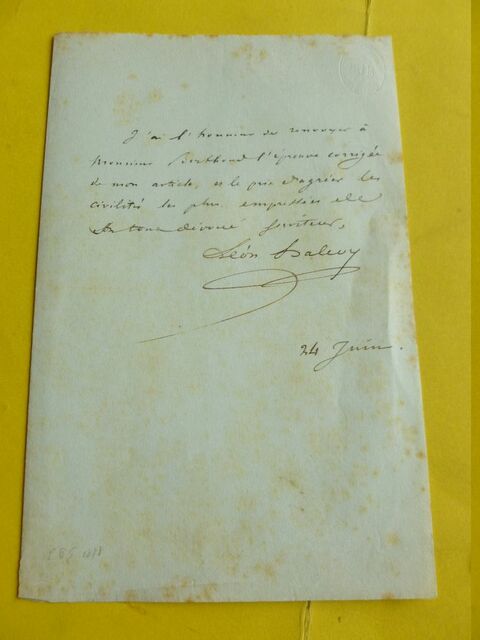 J'ai l'honneur de renvoyer à
Monsieur Berthoud l'épreuve corrigée
de mon article, et le prie d'agréer les
civilités les plus empressées de
Son tout dévoué serviteur,
Léon Halevy
24 Juin.